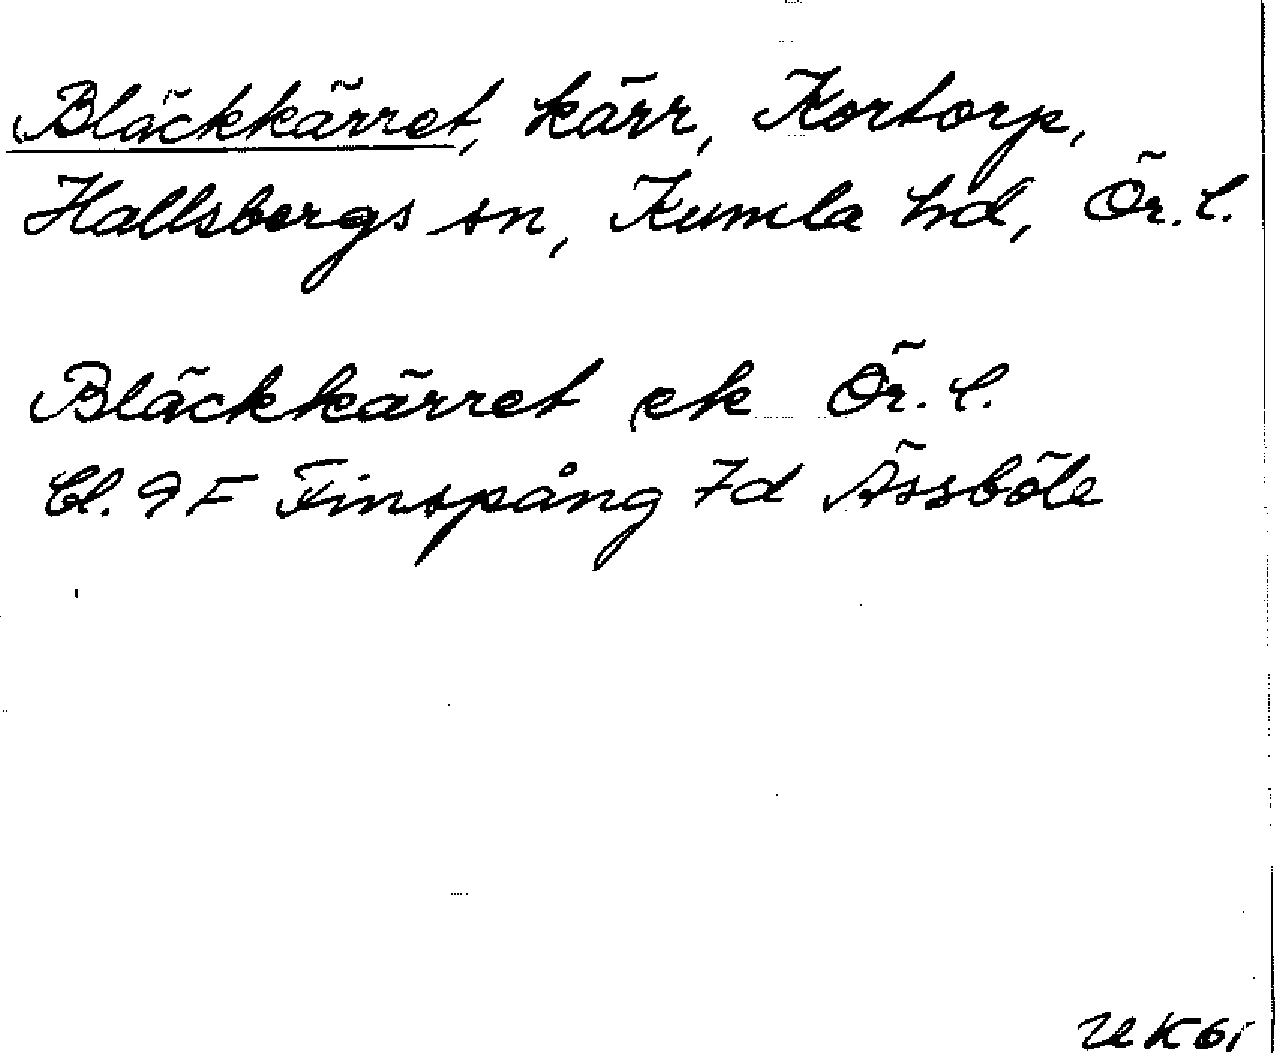 Bläckkärret, kärr, Kortorp,
Hallsbergs sn, Kumla hd, Ör. l.
Bläckkärret ek Ör. l.
Bl. 9 F Finspång 7d Ässböle
UK 61